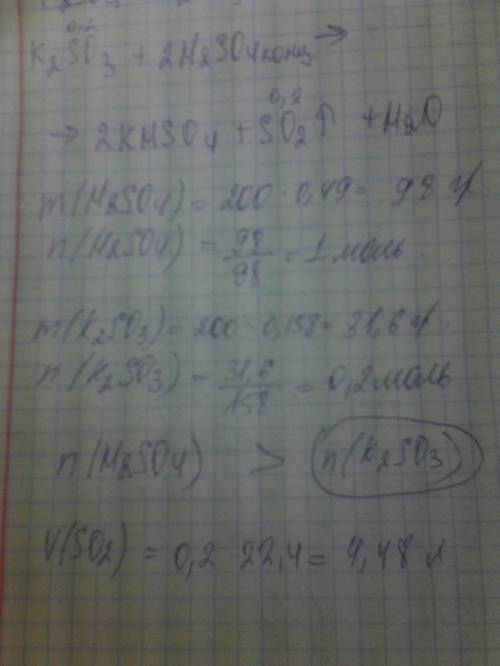 0,2
K₂SO₃ + 2H₂SO₄ конц →
0,2
→ 2KHSO₄ + SO₂↑ + H₂O
m(H₂SO₄) = 200 · 0,49 = 98 г
n(H₂SO₄) = 98/98 = 1 моль
m(K₂SO₃) = 200 · 0,158 = 31,6 г.
n(K₂SO₃) = 31,6/158 = 0,2 моль
n(H₂SO₄) > n(K₂SO₃)
V(SO₂) = 0,2 · 22,4 = 4,48 л.